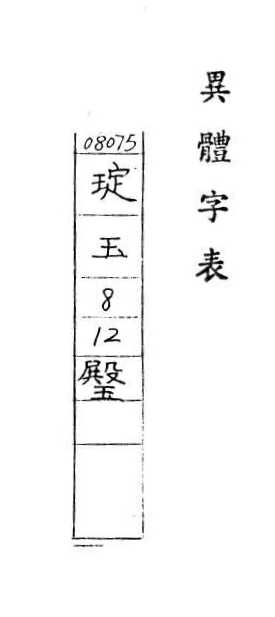 異體字表
08075
琔
玉
8
12